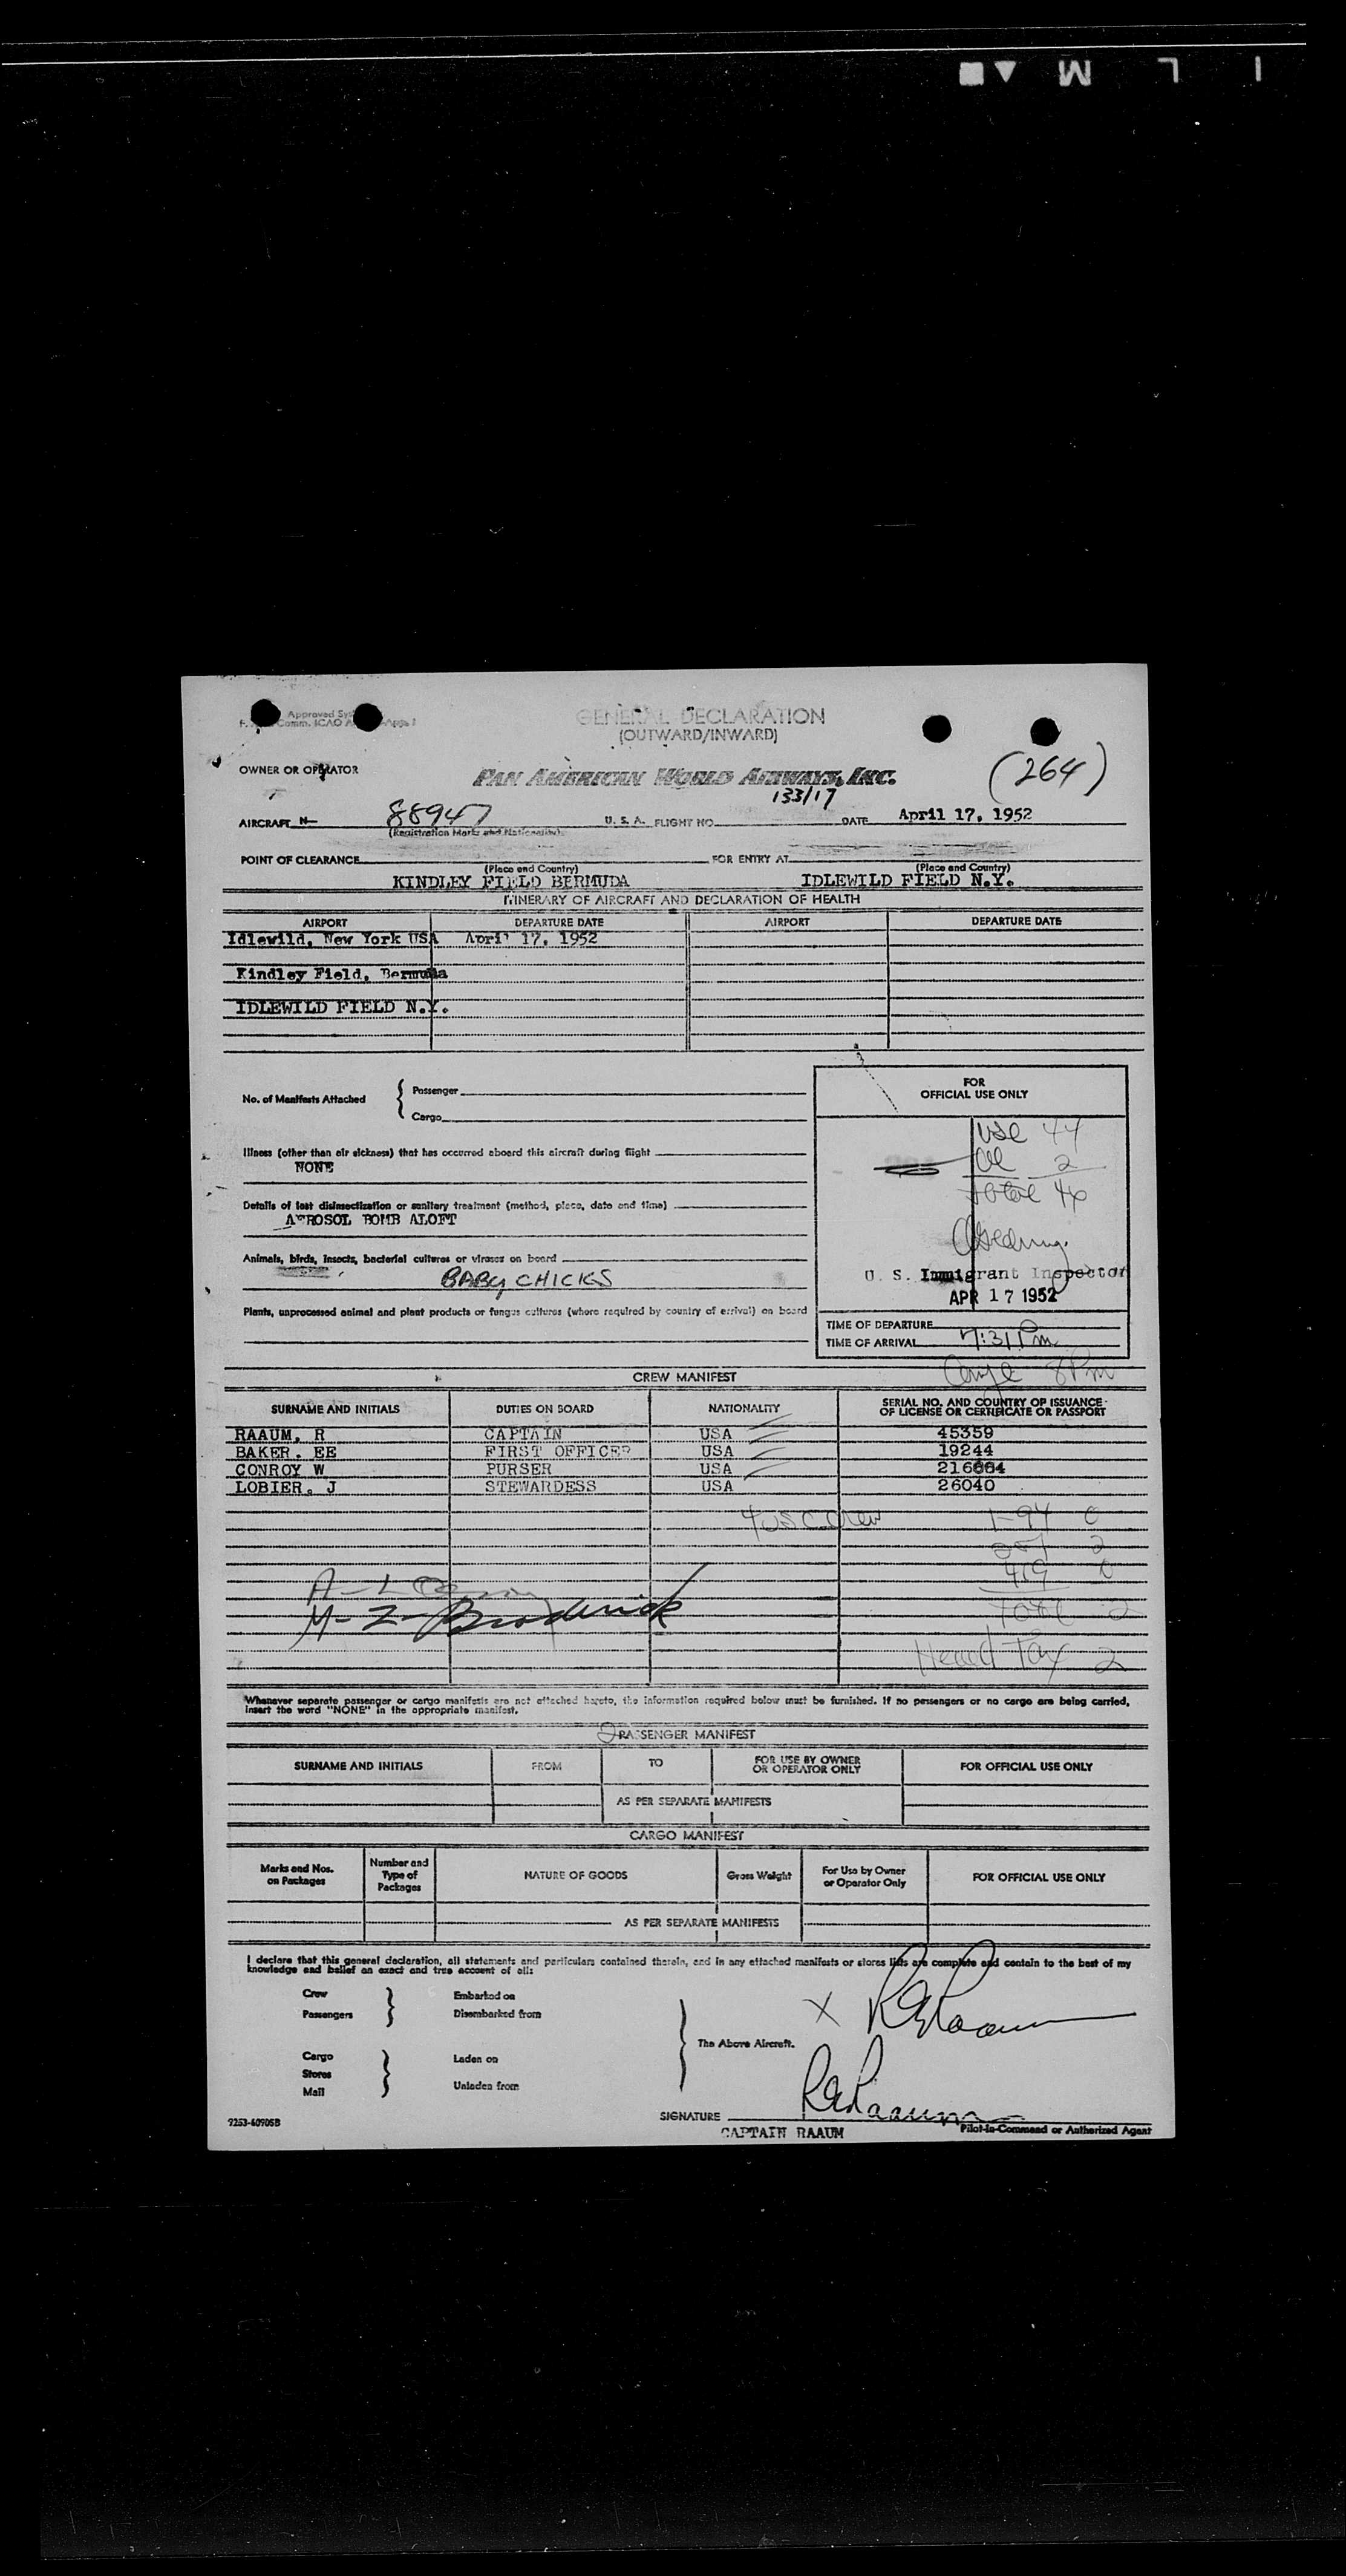 GENERAL DECLARATION
(OUTWARD/INWARD)
OWNER OR OPERATOR
PAN AMERICAN WORLD AIRWAYS, INC.
(264)
133/17
AIRCRAFT N- 88947 U. S. A. FLIGHT NO. DATE April 17, 1952
(Registration Marks and Nationality)
POINT OF CLEARANCE FOR ENTRY AT
(Place and Country) (Place and Country)
KINDLEY FIELD BERMUDA IDLEWILD FIELD N.Y.
ITINERARY OF AIRCRAFT AND DECLARATION OF HEALTH
AIRPORT DEPARTURE DATE AIRPORT DEPARTURE DATE
Idlewild, New York USA April 17, 1952
Kindley Field, Bermuda
IDLEWILD FIELD N.Y.
No. of Manifests Attached
Passenger
Cargo
Illness (other than air sickness) that has occurred aboard this aircraft during flight
NONE
Details of last disinsectization or sanitary treatment (method, place, date and time)
AEROSOL BOMB ALOFT
Animals, birds, insects, bacterial cultures or viruses on board
BABY CHICKS
Plants, unprocessed animal and plant products or fungus cultures (where required by country of arrival) on board
FOR
OFFICIAL USE ONLY
USC 44
Al 2
total 46
U. S. Immigrant Inspector
APR 17 1952
TIME OF DEPARTURE
TIME OF ARRIVAL 7:31 Pm
8 Pm
CREW MANIFEST
SURNAME AND INITIALS DUTIES ON BOARD NATIONALITY SERIAL NO. AND COUNTRY OF ISSUANCE OF LICENSE OR CERTIFICATE OR PASSPORT
RAAUM, R CAPTAIN USA 45359
BAKER, EE FIRST OFFICER USA 19244
CONROY W PURSER USA 216664
LOBIER, J STEWARDESS USA 26040
4 USC Crew
I-94 0
257 2
419 0
Total 2
Head Tax 2
M-2-Broderick
Whenever separate passenger or cargo manifests are not attached hereto, the information required below must be furnished. If no passengers or no cargo are being carried,
insert the word "NONE" in the appropriate manifest.
PASSENGER MANIFEST
SURNAME AND INITIALS FROM TO FOR USE BY OWNER OR OPERATOR ONLY FOR OFFICIAL USE ONLY
AS PER SEPARATE MANIFESTS
CARGO MANIFEST
Marks and Nos. on Packages Number and Type of Packages NATURE OF GOODS Gross Weight For Use by Owner or Operator Only FOR OFFICIAL USE ONLY
AS PER SEPARATE MANIFESTS
I declare that this general declaration, all statements and particulars contained therein, and in any attached manifests or stores lists are complete and contain to the best of my
knowledge and belief an exact and true account of all:
Crew Embarked on
Passengers Disembarked from
X R Raaum
The Above Aircraft.
Cargo Laden on
Stores
Mail Unladen from
R Raaum
SIGNATURE
9253-60905B
CAPTAIN RAAUM Pilot-in-Command or Authorized Agent